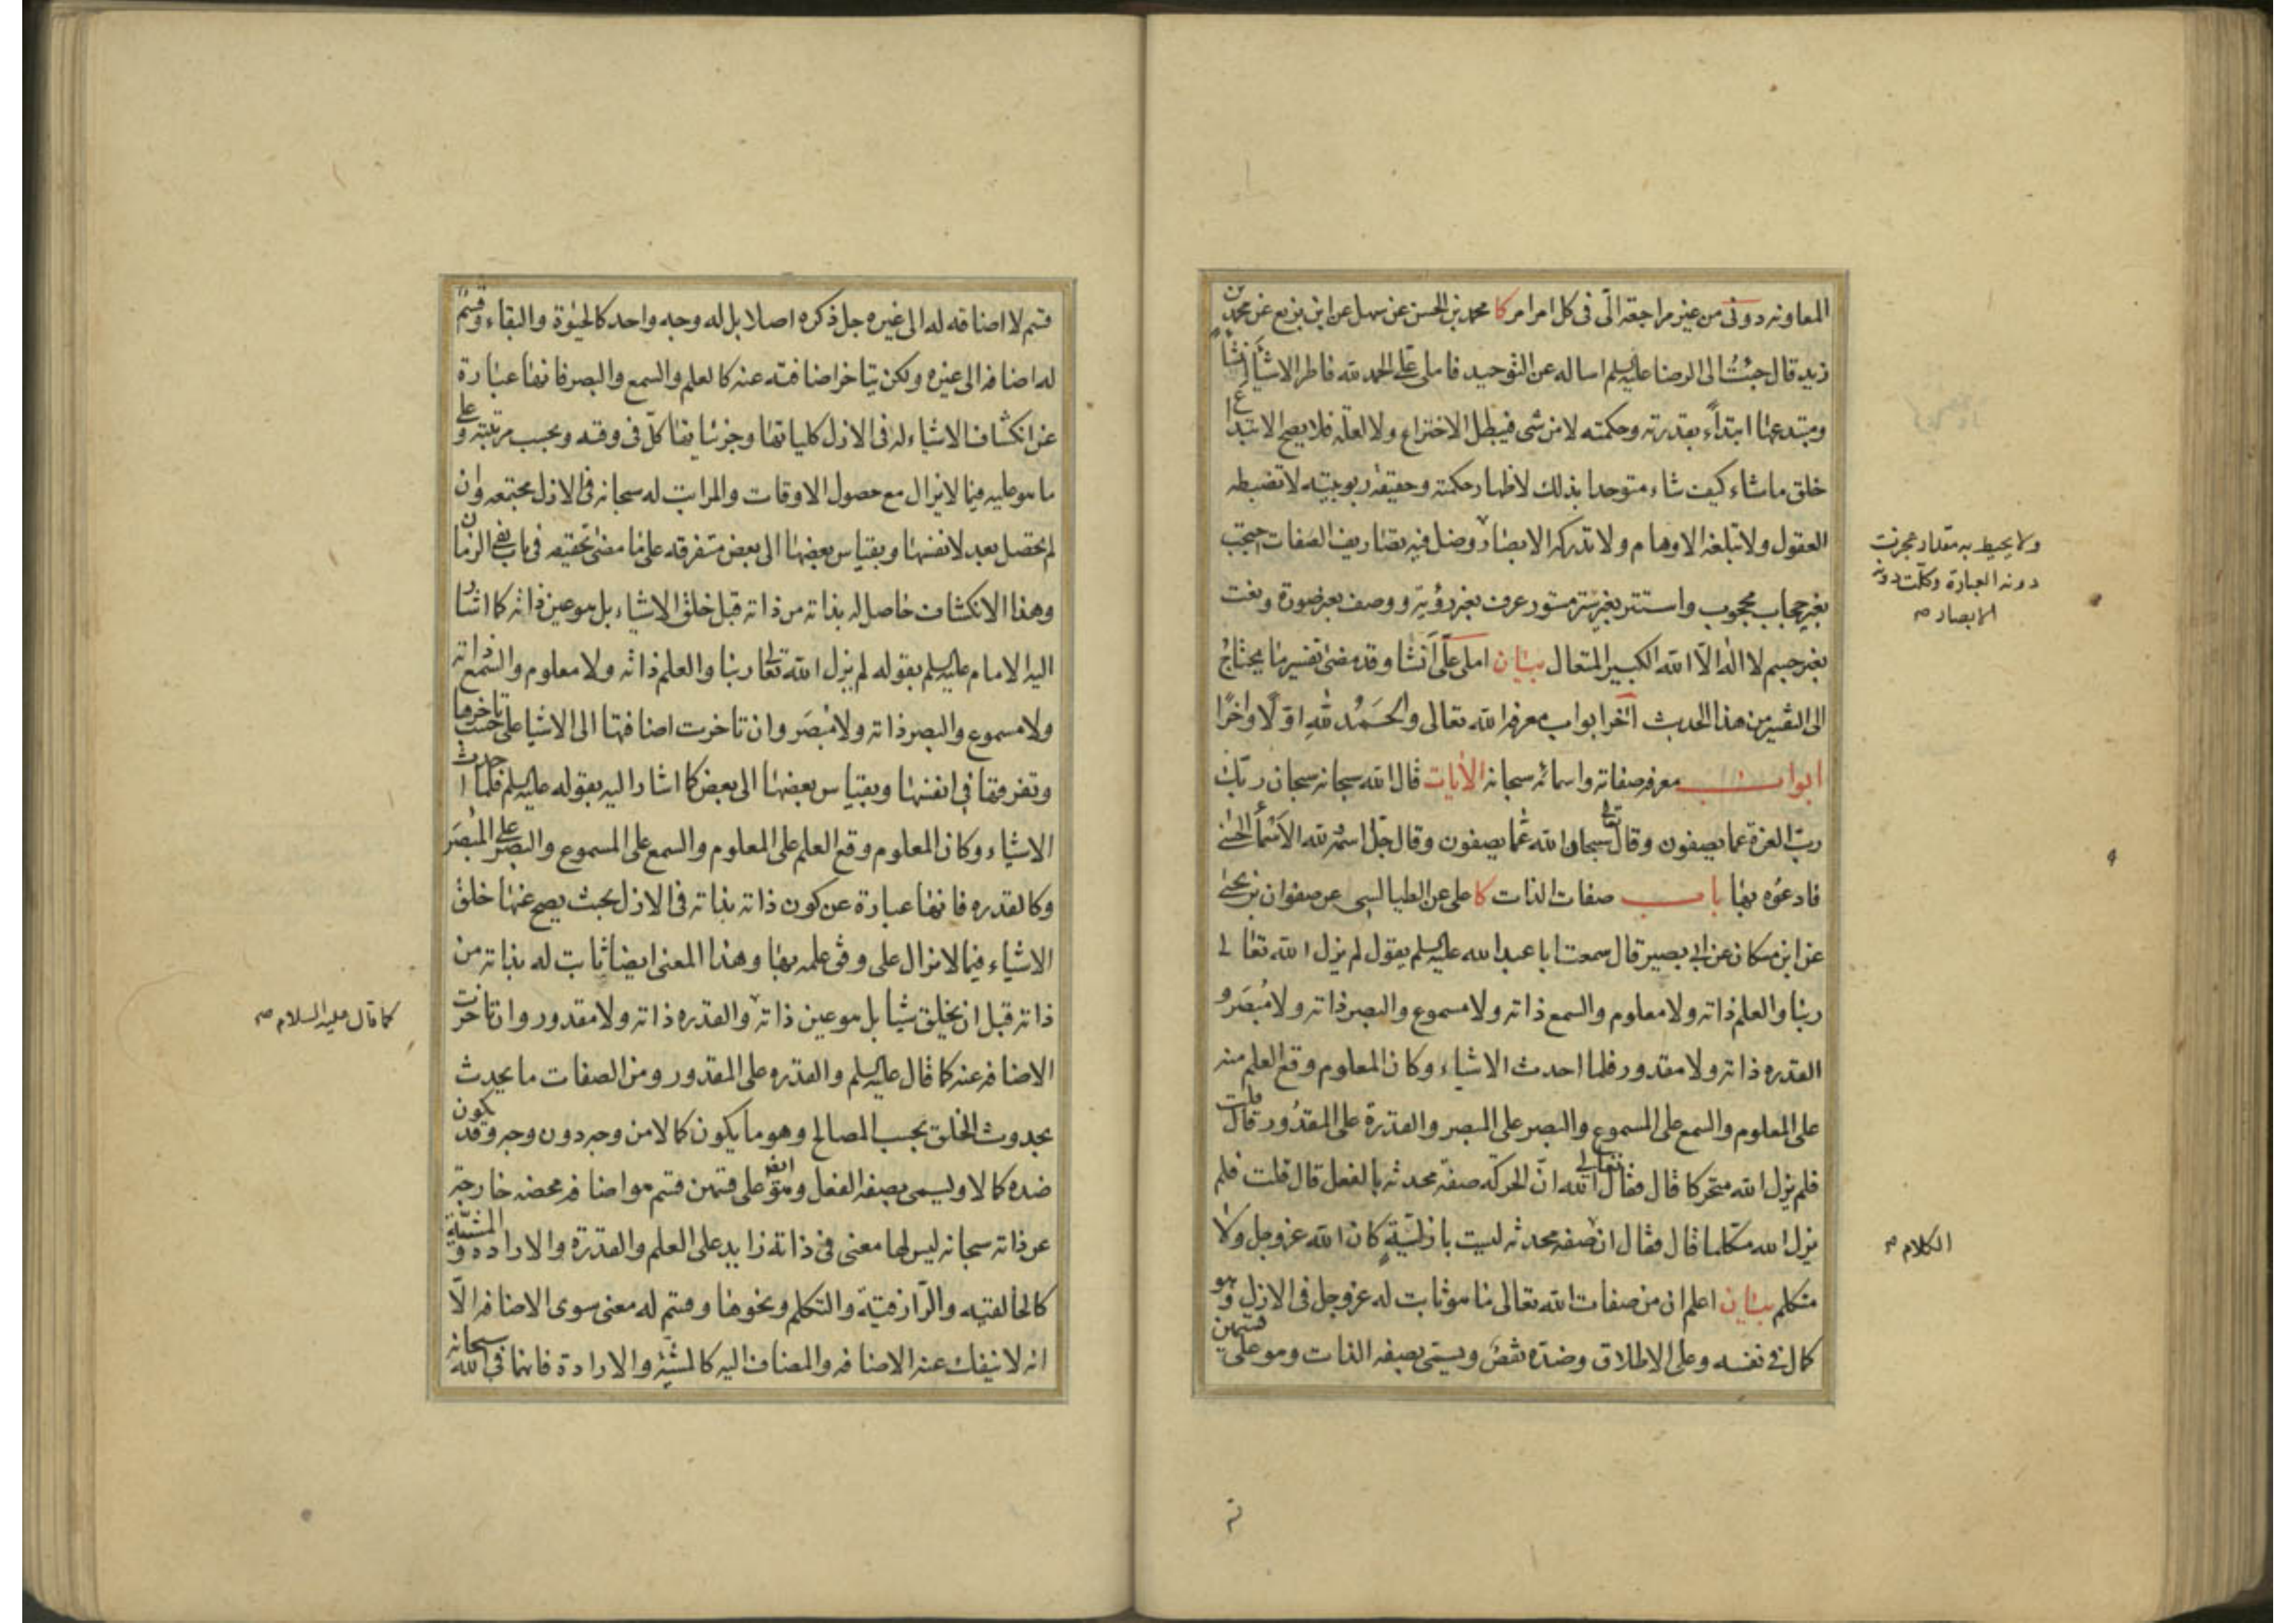 المعاونه دونى من غير مراجعة الّى فى كل امر امر كا محمد بن الحسن عن سهل عن ابن بزيع عن محمد بن
زيد قال جئتُ الى الرضا عليه السلم اساله عن التوحيد فاملى علىّ الحمد لله فاطر الاشياء انشاءً
ومبتدعها ابتداءً بقدرته وحكمته لا من شى فيبطل الاختراع ولا لعلّة فلا يصح الابتداع
خلق ما شاء كيف شاء متوحدا بذلك لاظهار حكمته وحقيقة ربوبيته لا تضبطه
العقول ولا تبلغه الاوهام ولا تدركه الابصار وضل فيه تصاريف الصفات احتجب
ولا يحيط به مقدار عجزت
دونه العبارة وكلّت دونه
الابصار صح
بغير حجاب محجوب واستتر بغير ستر مستور عرف بغير رؤية ووصف بغير صورة ونعت
بغير جسم لا اله الّا الله الكبير المتعال بيان املى علىّ انشا وقد مضى تفسير ما يحتاج
الى التفسير من هذا الحديث آخر ابواب معرفة الله تعالى والحَمدُ لله اوّلًا واخرًا
ابواب معرفة صفاته واسمائه سبحانه الايات قال الله سبحانه سبحان ربّك
ربّ العزة عما يصفون وقال تعالى سبحان الله عمّا يصفون وقال جلّ اسمه لله الاسماء الحسنى
فادعُوه بها باب صفات الذات كا على عن الطيالسى عن صفوان بن يحيى
عن ابن مسكان عن ابى بصير قال سمعت ابا عبد الله عليه السلم يقول لم يزل الله تعالى
ربنا والعلم ذاته ولا معلوم والسمع ذاته ولا مسموع والبصر ذاته ولا مُبصَر و
القدره ذاته ولا مقدور فلما احدث الاشياء وكان المعلوم وقع العلم منه
على المعلوم والسمع على المسموع والبصر على المبصر والقدرة على المقدُور قال قلت
فلم يزل الله متحركا قال فقال تعالى الله انّ الحركة صفة محدثه بالفعل قال قلت فلم
يزل الله متكلما قال فقال ان صفه محدثه ليست بازليّةٍ كان الله عزوجل ولا
الكلام صح
متكلم بيان اعلم ان من صفات الله تعالى ما هو ثابت له عزوجل فى الازل وهو
كمال فى نفسه وعلى الاطلاق وضدّه نقصٌ ويسمّى بصفه الذات وهو على قسمين
قسم لا اضافه له الى غيره جل ذكره اصلا بل له وجه واحد كالحيٰوة والبقاء وقسمٌ
له اضافه الى غيره ولكن يتاخر اضافته عنه كالعلم والسمع والبصر فانها عبارة
عن انكشاف الاشياء له فى الازل كلياتها وجزئياتها كلّ فى وقته وبحسب مرتبته وعلى
ما هو عليه فيما لا يزال مع حصول الاوقات والمراتب له سبحانه فى الازل مجتمعه وان
لم يحصل بعد لانفسها وبقياس بعضها الى بعض متفرقه على ما مضى تحقيقه فى باب نفى الزمان
وهذا الانكشاف حاصل له بذاته من ذاته قبل خلق الاشياء بل هو عين ذاته كما اشار
اليه الامام عليه السلم بقوله لم يزل الله تعالى ربنا والعلم ذاته ولا معلوم والسّمع ذاته
ولا مسموع والبصر ذاته ولا مُبصَر وان تاخرت اضافتها الى الاشيا على حسب تاخرها
وتفرقها فى انفسها وبقياس بعضها الى بعض كما اشار اليه بقوله عليه السلم فلما احدث
الاشياء وكان المعلوم وقع العلم على المعلوم والسمع على المسموع والبصر على المُبصَر
وكالقدره فانها عبارة عن كون ذاته بذاته فى الازل بحيث يصح عنها خلق
الاشياء فيما لا يزال على وفق علمه بها وهذا المعنى ايضا ثابت له بذاته من
ذاته قبل ان يخلق شيئا بل هو عين ذاته والقدره ذاته ولا مقدور وان تاخرت
كما قال عليه السلام صح
الاضافه عنه كما قال عليه السلم والقدره على المقدور ومن الصفات ما يحدث
بحدوث الخلق بحسب المصالح وهو ما يكون كمالا من وجه دون وجه وقد يكون
ضده كمالا ويسمى بصفه الفعل وهو ايضا على قسمين قسم هو اضافه محضه خارجة
عن ذاته سبحانه ليس لها معنى فى ذاته زايد على العلم والقدرة والاراده والمشيّة
كالخالقيه والرّازقيّة والتكلم ونحوها وقسم له معنى سوى الاضافه الّا
انه لا ينفك عنه الاضافه والمضاف اليه كالمشيّه والارادة فانها فى الله سبحانه